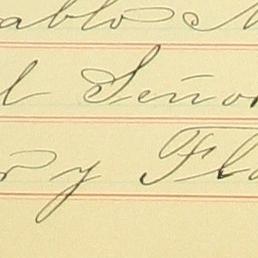 ablo M
l Señor
r y Fl